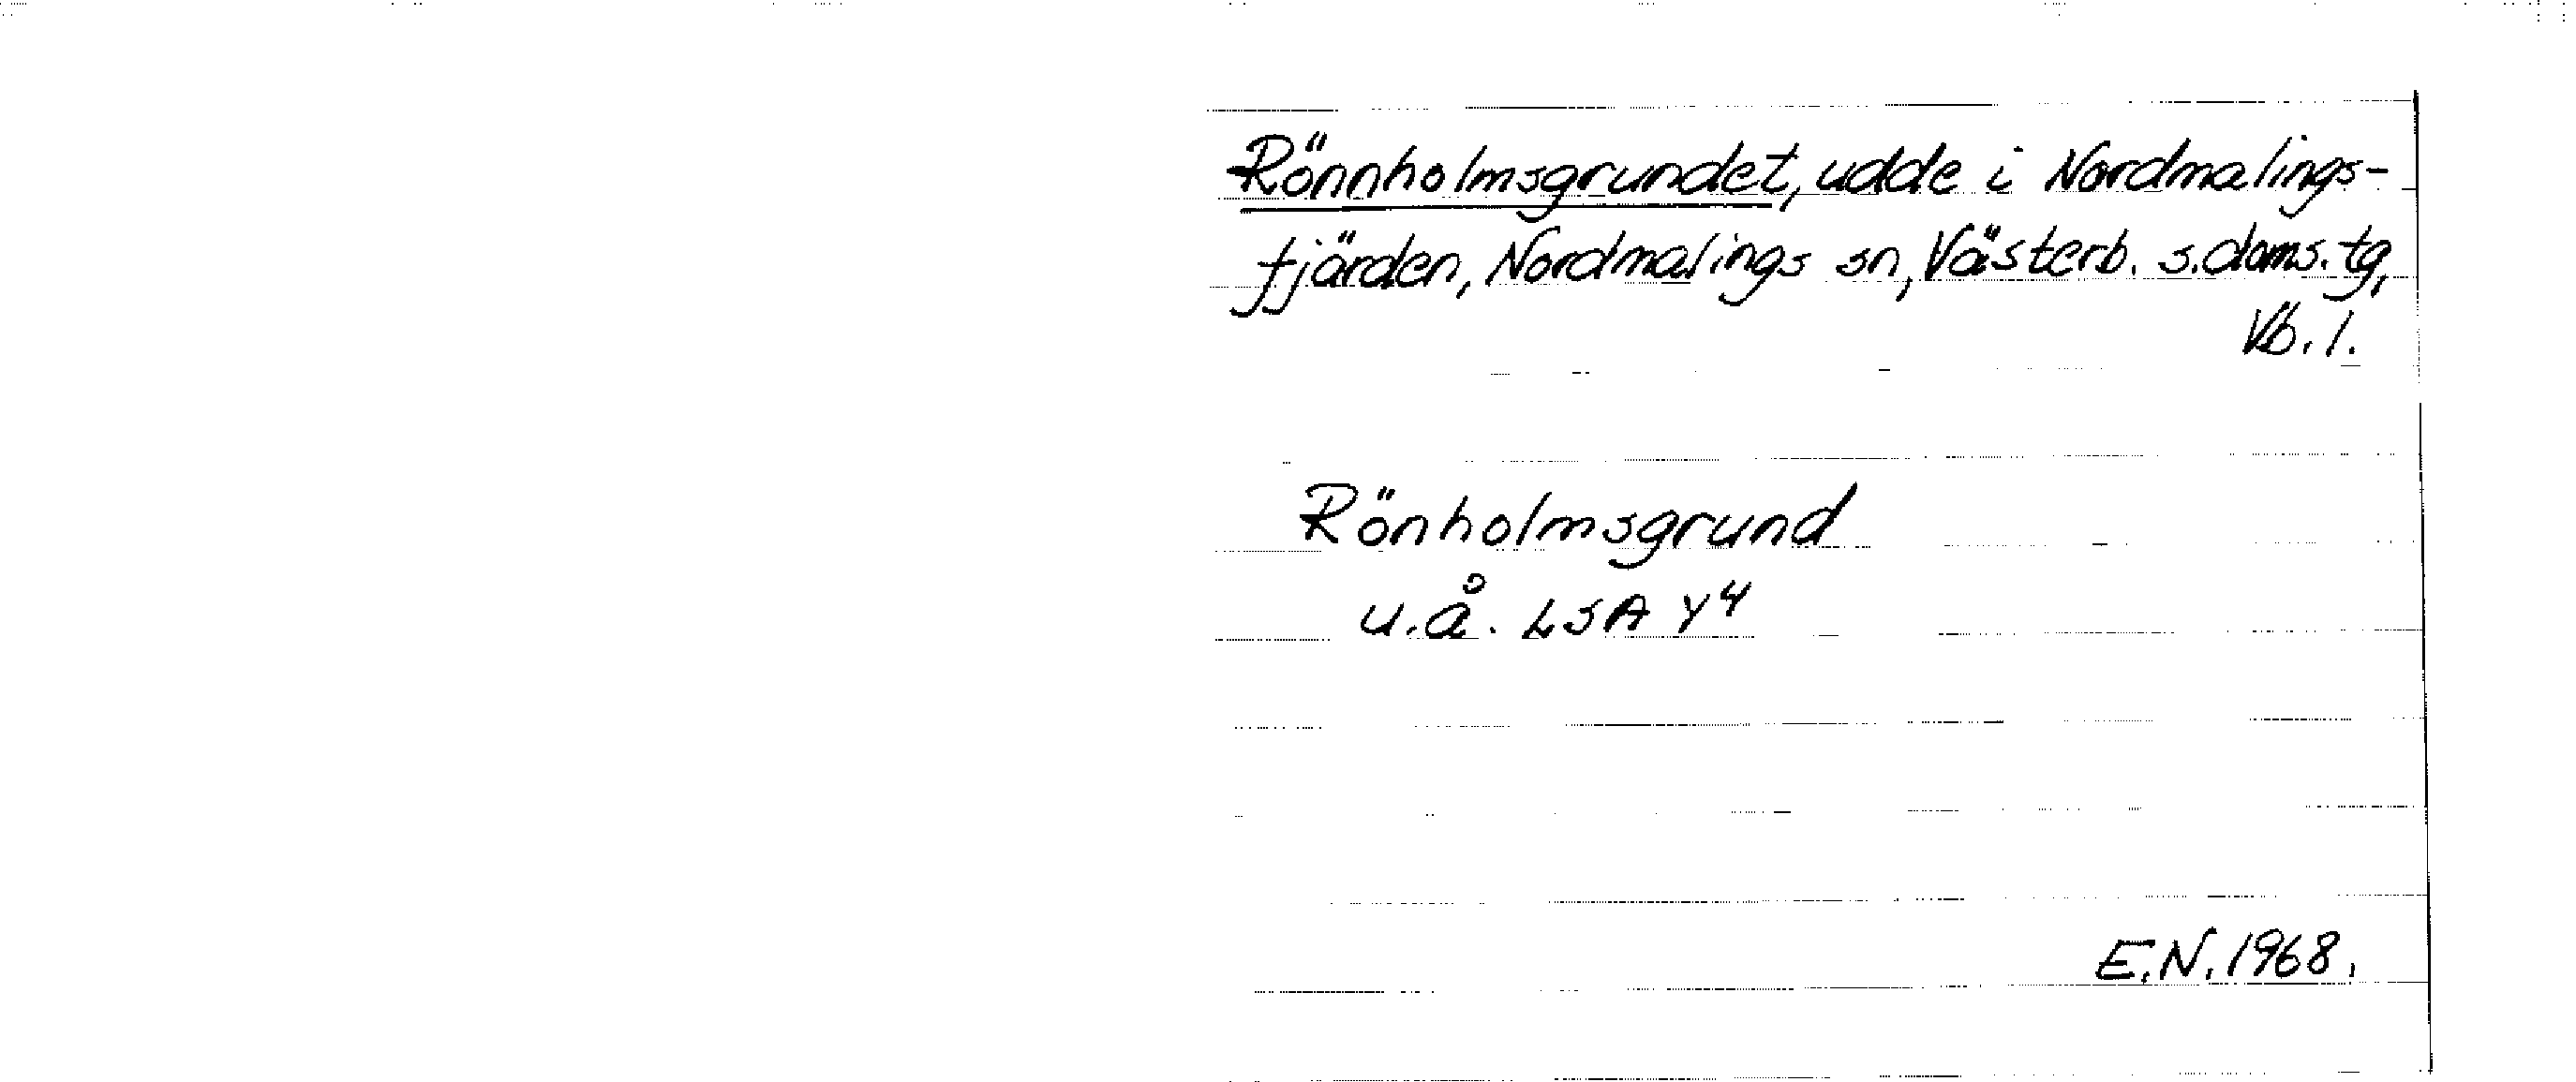 Rönnholmsgrundet, udde i Nordmalings-
fjärden, Nordmalings sn, Västerb. s. doms. tg,
Vb. l.
Rönholmsgrund
u.å. LSA Y4
E.N. 1968.